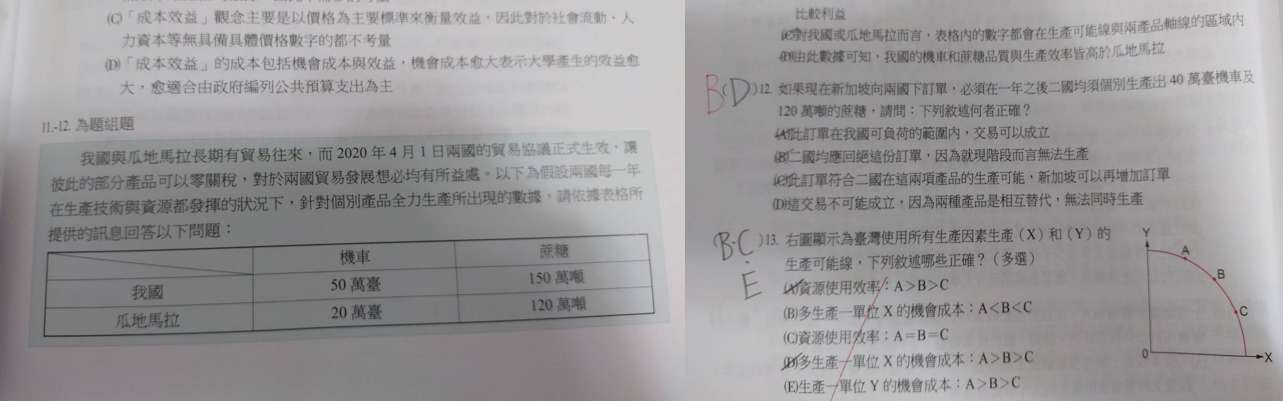 (C)「成本效益」觀念主要是以價格為主要標準來衡量效益，因此對於社會流動、人
力資本等無具備具體價格數字的都不考量
(D)「成本效益」的成本包括機會成本與效益，機會成本愈大表示大學產生的效益愈
大，愈適合由政府編列公共預算支出為主
11.-12. 為題組題
我國與瓜地馬拉長期有貿易往來，而 2020 年 4 月 1 日兩國的貿易協議正式生效，讓
彼此的部分產品可以零關稅，對於兩國貿易發展想必均有所益處。以下為假設兩國每一年
在生產技術與資源都發揮的狀況下，針對個別產品全力生產所出現的數據，請依據表格所
提供的訊息回答以下問題：
機車 蔗糖
我國 50 萬臺 150 萬噸
瓜地馬拉 20 萬臺 120 萬噸
比較利益
(C)對我國或瓜地馬拉而言，表格內的數字都會在生產可能線與兩產品軸線的區域內
(D)由此數據可知，我國的機車和蔗糖品質與生產效率皆高於瓜地馬拉
B(D)12. 如果現在新加坡向兩國下訂單，必須在一年之後二國均須個別生產出 40 萬臺機車及
120 萬噸的蔗糖，請問：下列敘述何者正確？
(A)此訂單在我國可負荷的範圍內，交易可以成立
(B)二國均應回絕這份訂單，因為就現階段而言無法生產
(C)此訂單符合二國在這兩項產品的生產可能，新加坡可以再增加訂單
(D)這交易不可能成立，因為兩種產品是相互替代，無法同時生產
(B.C.E)13. 右圖顯示為臺灣使用所有生產因素生產（X）和（Y）的
生產可能線，下列敘述哪些正確？（多選）
(A)資源使用效率：A＞B＞C
(B)多生產一單位 X 的機會成本：A＜B＜C
(C)資源使用效率：A＝B＝C
(D)多生產一單位 X 的機會成本：A＞B＞C
(E)生產一單位 Y 的機會成本：A＞B＞C
Y
A
B
C
0
X